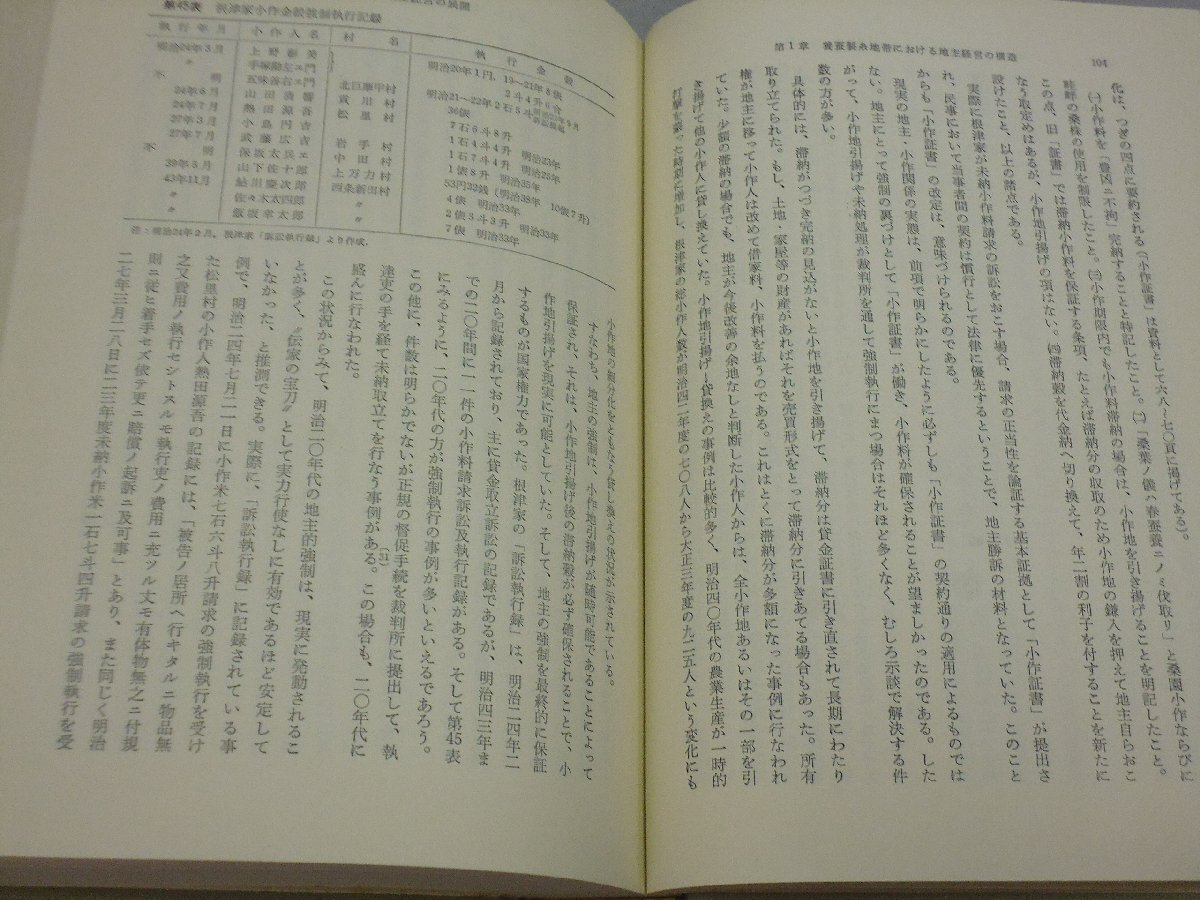 104
第1章 養蚕製糸地帯における地主経営の構造
化は、つぎの四点に要約される(「小作証書」は資料として六八〜七〇頁に掲げてある)。
㈠小作料を「豊凶ニ不拘」完納することと特記したこと。㈡「桑葉ノ儀ハ春蚕養ニノミ伐取リ」と桑園小作ならびに
畦畔の桑株の使用を制限したこと。㈢小作期限内でも小作料滞納の場合は、小作地を引き揚げることを明記したこと。
この点、旧「証書」では滞納小作料を保証する条項、たとえば滞納分の収取のため小作地の鎌入を押えて地主自らおこ
なう取定めはあるが、小作地引揚げの項はない。㈣滞納穀を代金納へ切り換えて、年二割の利子を付することを新たに
設けたこと、以上の諸点である。
実際に根津家が未納小作料請求の訴訟をおこす場合、請求の正当性を論証する基本証拠として「小作証書」が提出さ
れ、民事において当事者間の契約は慣行として法律に優先するということで、地主勝訴の材料となっていた。このこと
からも「小作証書」の改定は、意味づけられるのである。
現実の地主・小作関係の実態は、前項で明らかにしたように必ずしも「小作証書」の契約通りの適用によるものでは
ない。地主にとって強制の裏づけとして「小作証書」が働き、小作料が確保されることが望ましかったのである。した
がって、小作地引揚げや未納処理が裁判所を通して強制執行にまつ場合はそれほど多くなく、むしろ示談で解決する件
数の方が多い。
具体的には、滞納がつづき完納の見込がないと小作地を引き揚げて、滞納分は貸金証書に引き直されて長期にわたり
取り立てられた。もし、土地・家屋等の財産があればそれを売買形式をとって滞納分に引きあてる場合もあった。所有
権が地主に移って小作人は改めて借家料、小作料を払うのである。これはとくに滞納分が多額になった事例に行なわれ
ていた。少額の滞納の場合でも、地主が今後改善の余地なしと判断した小作人からは、全小作地あるいはその一部を引
き揚げて他の小作人に貸し換えていた。小作地引揚げ—貸換えの事例は比較的多く、明治四〇年代の農業生産が一時的
打撃を蒙った時期に増加し、根津家の総小作人数が明治四二年度の七〇八人から大正三年度の九二五人という変化にも
経営の展開
第45表 根津家小作金穀強制執行記録
執行年月 小作人名 村名 執行金穀
明治24年3月
不明
24年6月
24年7月
27年3月
27年7月
不明
39年3月
43年11月
注:明治24年2月,根津家「訴訟執行録」より作成.
小作地の細分化をともなう貸し換えの状況が示されている。
すなわち、地主の強制は、小作地引揚げが随時可能であることによって
保証され、それは、小作地引揚げ後の滞納穀が必ず確保されることで、小
作地引揚げを現実に可能としていた。そして、地主の強制を最終的に保証
するものが国家権力であった。根津家の「訴訟執行録」は、明治二四年二
月から記録されており、主に貸金取立訴訟の記録であるが、明治四三年ま
での二〇年間に一一件の小作料請求訴訟及執行記録がある。そして第45表
にみるように、二〇年代の方が強制執行の事例が多いといえるであろう。
この他に、件数は明らかでないが正規の督促手続を裁判所に提出して、執
達吏の手を経て未納取立てを行なう事例がある。この場合も、二〇年代に
(51)
盛んに行なわれた。
この状況からみて、明治二〇年代の地主的強制は、現実に発動されるこ
とが多く、〝伝家の宝刀〟として実力行使なしに有効であるほど安定して
いなかった、と推測できる。実際に、「訴訟執行録」に記録されている事
例で、明治二四年七月二一日に小作米七石六斗八升請求の強制執行を受け
た松里村の小作人熱田源吾の記録には、「被告ノ居所ヘ行キタルニ物品無
之又費用ノ執行セントスルモ執行吏ノ費用ニ充ツル丈モ有体物無之ニ付規
則ニ従ヒ着手セズ依テ更ニ賠償ノ起訴ニ及可事」とあり、また同じく明治
二七年三月二八日に二三年度未納小作米一石七斗四升請求の強制執行を受